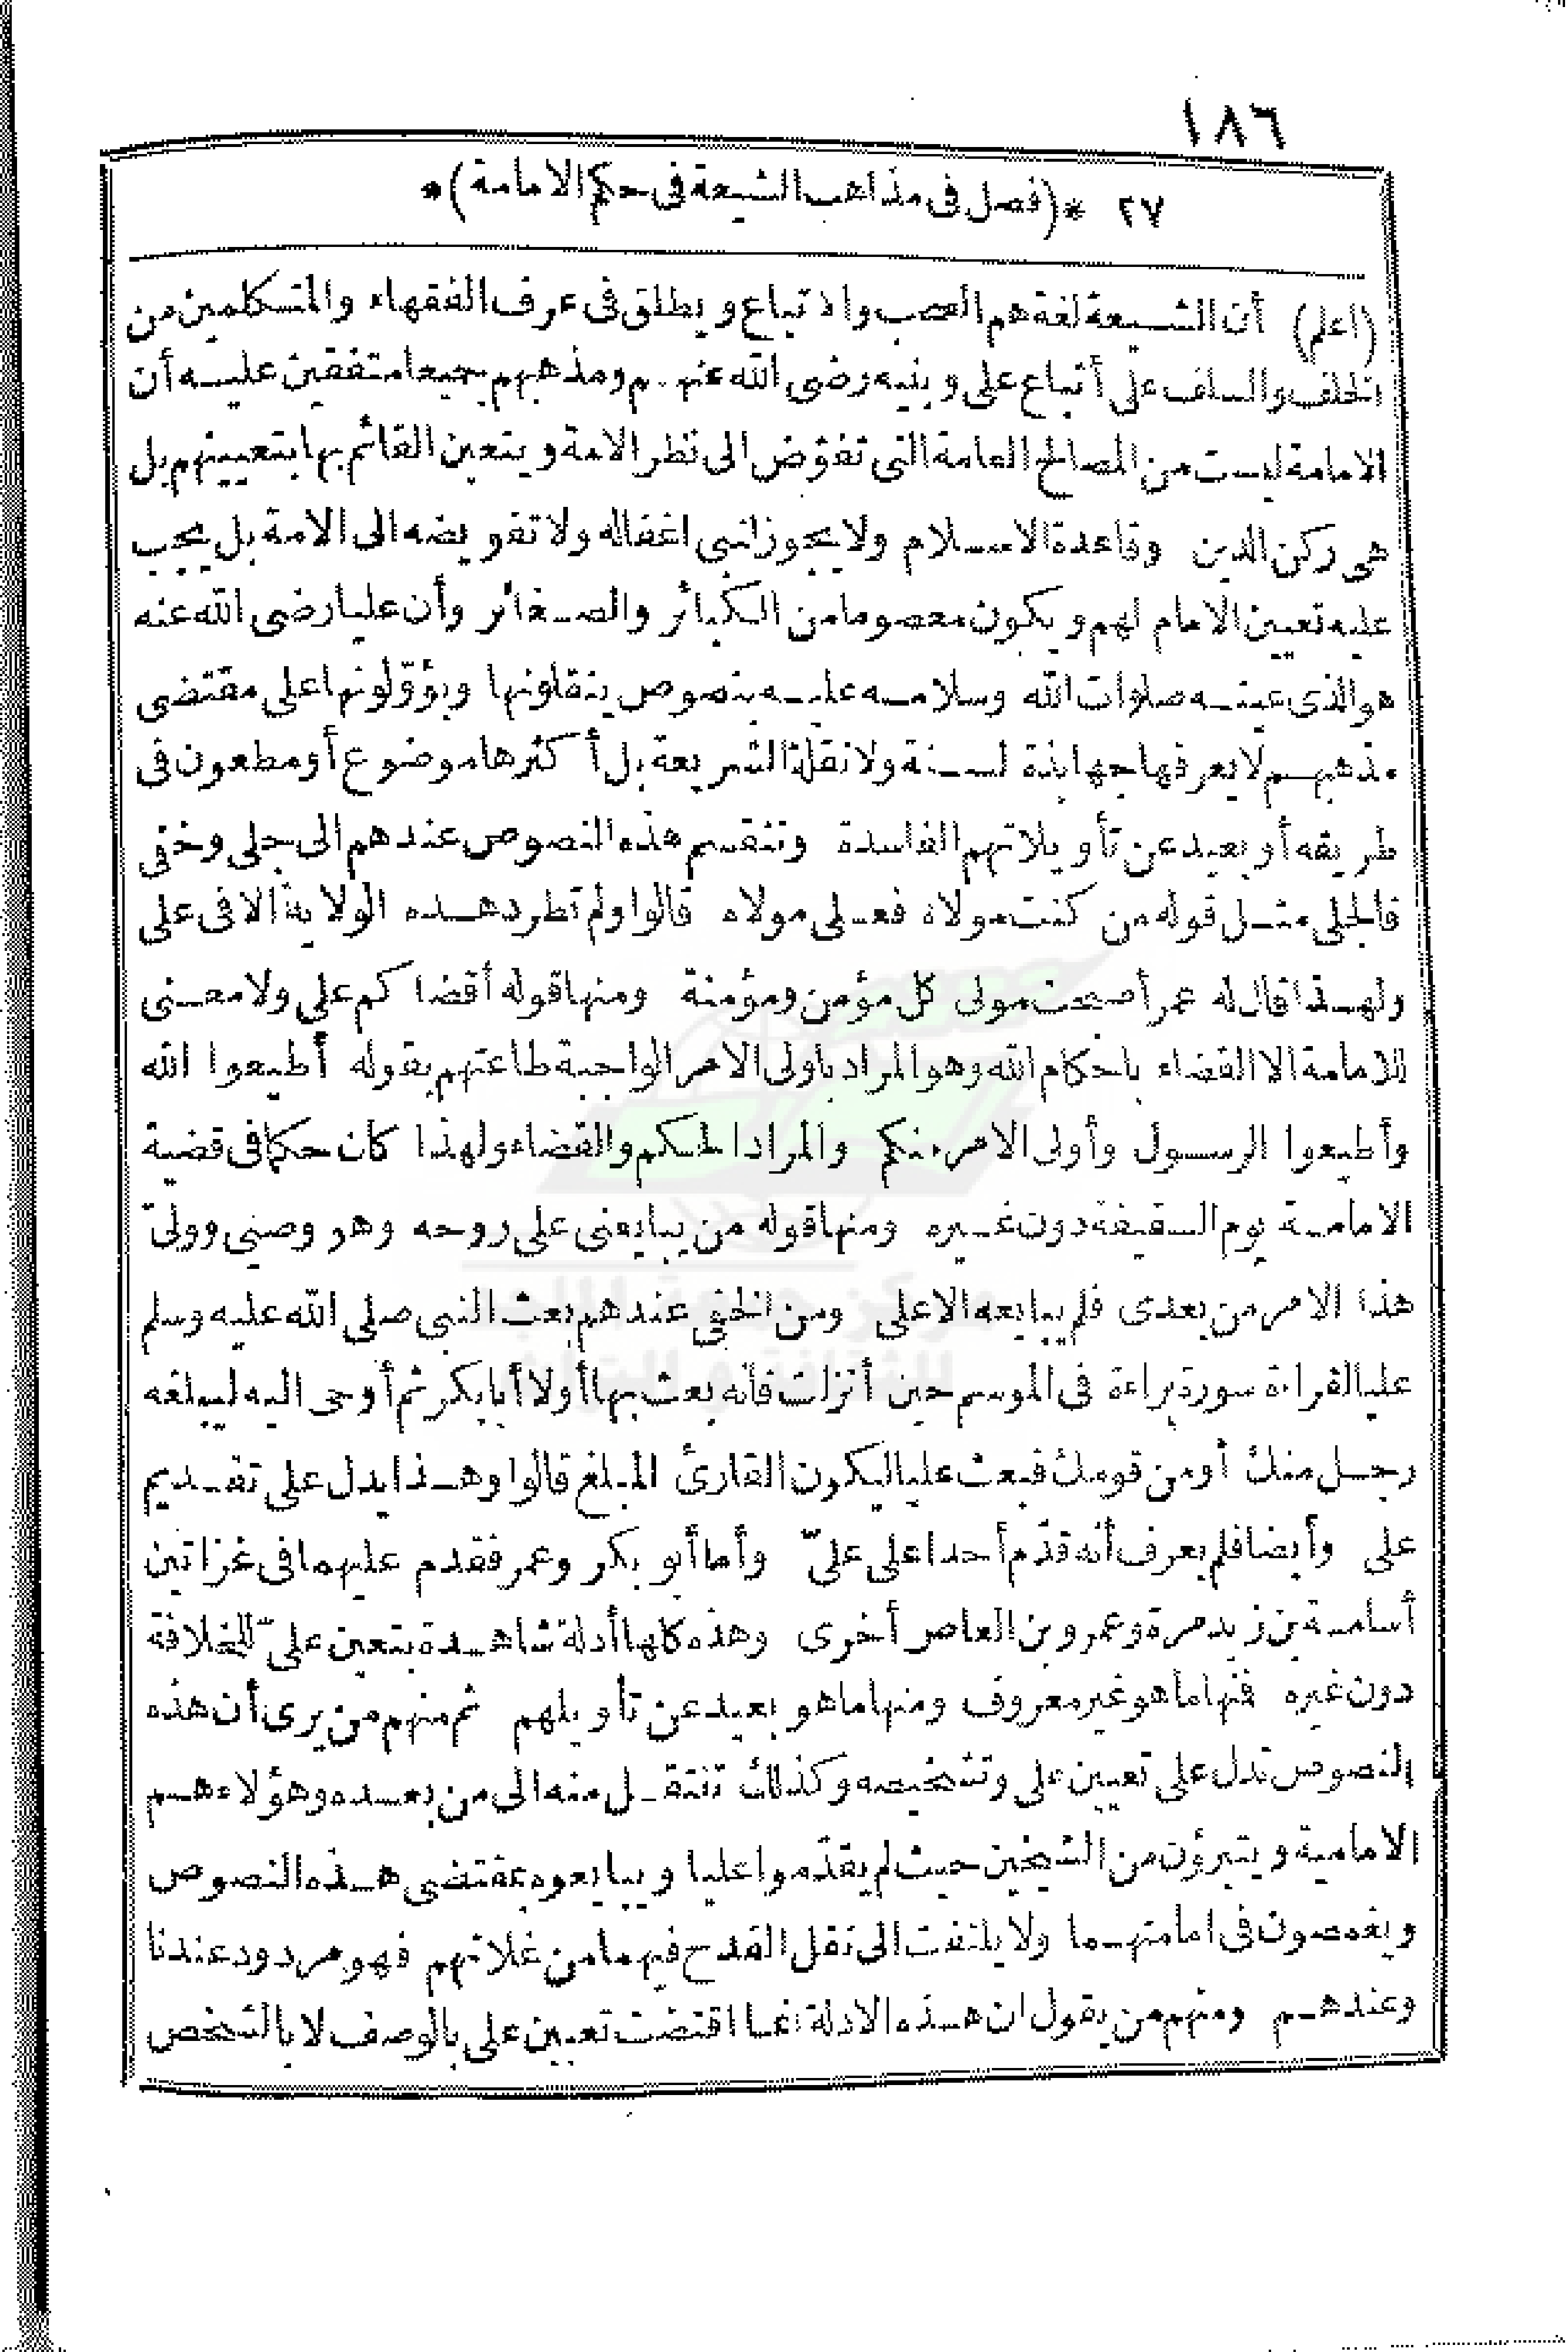 ١٨٦
٢٧ *(فصل فى مذاهب الشيعة فى حكم الامامة)*
(اعلم) أن الشيعة لغة هم الصحب والاتباع ويطلق فى عرف الفقهاء والمتكلمين من
الخلف والسلف على أتباع على وبنيه رضى الله عنهم ومذهبهم جميعا متفقين عليه أن
الامامة ليست من المصالح العامة التى تفوّض الى نظر الامة ويتعين القائم بها بتعيينهم بل
هى ركن الدين وقاعدة الاسلام ولا يجوز لنبى اغفاله ولا تفويضه الى الامة بل يجب
عليه تعيين الامام لهم ويكون معصوما من الكبائر والصغائر وأن عليا رضى الله عنه
هو الذى عينه صلوات الله وسلامه عليه بنصوص ينقلونها ويؤوّلونها على مقتضى
مذهبهم لا يعرفها جهابذة السنة ولا نقلة الشريعة بل أكثرها موضوع أو مطعون فى
طريقه أو بعيد عن تأويلاتهم الفاسدة وتنقسم هذه النصوص عندهم الى جلى وخفى
فالجلى مثل قوله من كنت مولاه فعلى مولاه قالوا ولم تطرد هذه الولاية الا فى على
ولهذا قال له عمر أصبحت مولى كل مؤمن ومؤمنة ومنها قوله أقضاكم على ولا معنى
للامامة الا القضاء باحكام الله وهو المراد باولى الامر الواجبة طاعتهم بقوله أطيعوا الله
وأطيعوا الرسول وأولى الامر منكم والمراد الحكم والقضاء ولهذا كان حكما فى قضية
الامامة يوم السقيفة دون غيره ومنها قوله من يبايعنى على روحه وهو وصيى وولىّ
هذا الامر من بعدى فلم يبايعه الا على ومن الخفى عندهم بعث النبى صلى الله عليه وسلم
عليا لقراءة سورة براءة فى الموسم حين أنزلت فانه بعث بها أولا أبا بكر ثم أوحى اليه ليبلغه
رجل منك أو من قومك فبعث عليا ليكون القارئ المبلغ قالوا وهذا يدل على تقديم
على وأيضا فلم يعرف أنه قدّم أحدا على علىّ وأما أبو بكر وعمر فقدم عليهما فى غزاتين
أسامة بن زيد مرة وعمرو بن العاص أخرى وهذه كلها أدلة شاهدة بتعين علىّ للخلافة
دون غيره فمنها ما هو غير معروف ومنها ما هو بعيد عن تأويلهم ثم منهم من يرى أن هذه
النصوص تدل على تعيين على وتشخيصه وكذلك تنتقل منه الى من بعده وهؤلاء هم
الامامية ويتبرؤن من الشيخين حيث لم يقدّموا عليا ويبايعوه بمقتضى هذه النصوص
ويغمصون فى امامتهما ولا يلتفت الى نقل القدح فيهما من غلاتهم فهو مردود عندنا
وعندهم ومنهم من يقول ان هذه الادلة انما اقتضت تعيين على بالوصف لا بالشخص